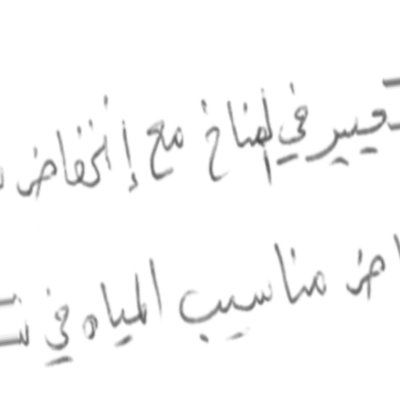 تغيير في المناخ مع إنخفاض
اض مناسيب المياه في